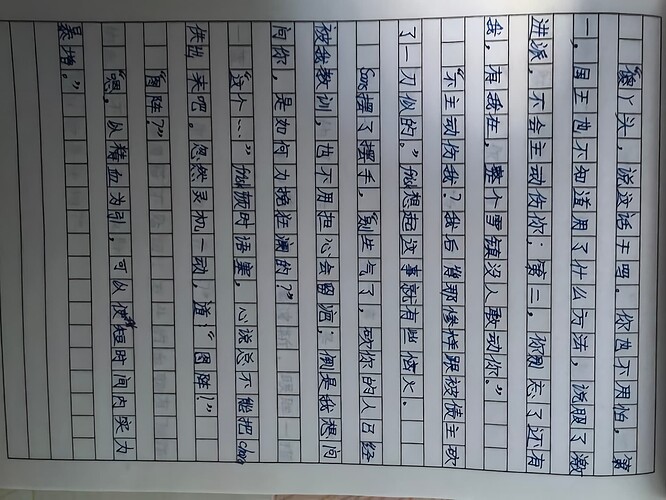 “傻丫头，说这话干嘛。你也不用怕，第
一，国王也不知道用了什么方法，说服了激
进派，不会主动伤你；第二，你别忘了还有
我，有我在，整个雪镇没人敢动你。”
“不主动伤我？我后背那惨样跟被债主砍
了一刀似的。”他想起这事就有些恼火。
摆了摆手，别生气了，砍你的人已经
被我教训，也不用担心会留疤；倒是我想问
问你，是如何力挽狂澜的？”
“这个…”他顿时语塞，心说总不能把
供出来吧。忽然灵机一动，道：“图阵！”
“图阵？”
“嗯，以精血为引，可以使短时间内实力
暴增。”